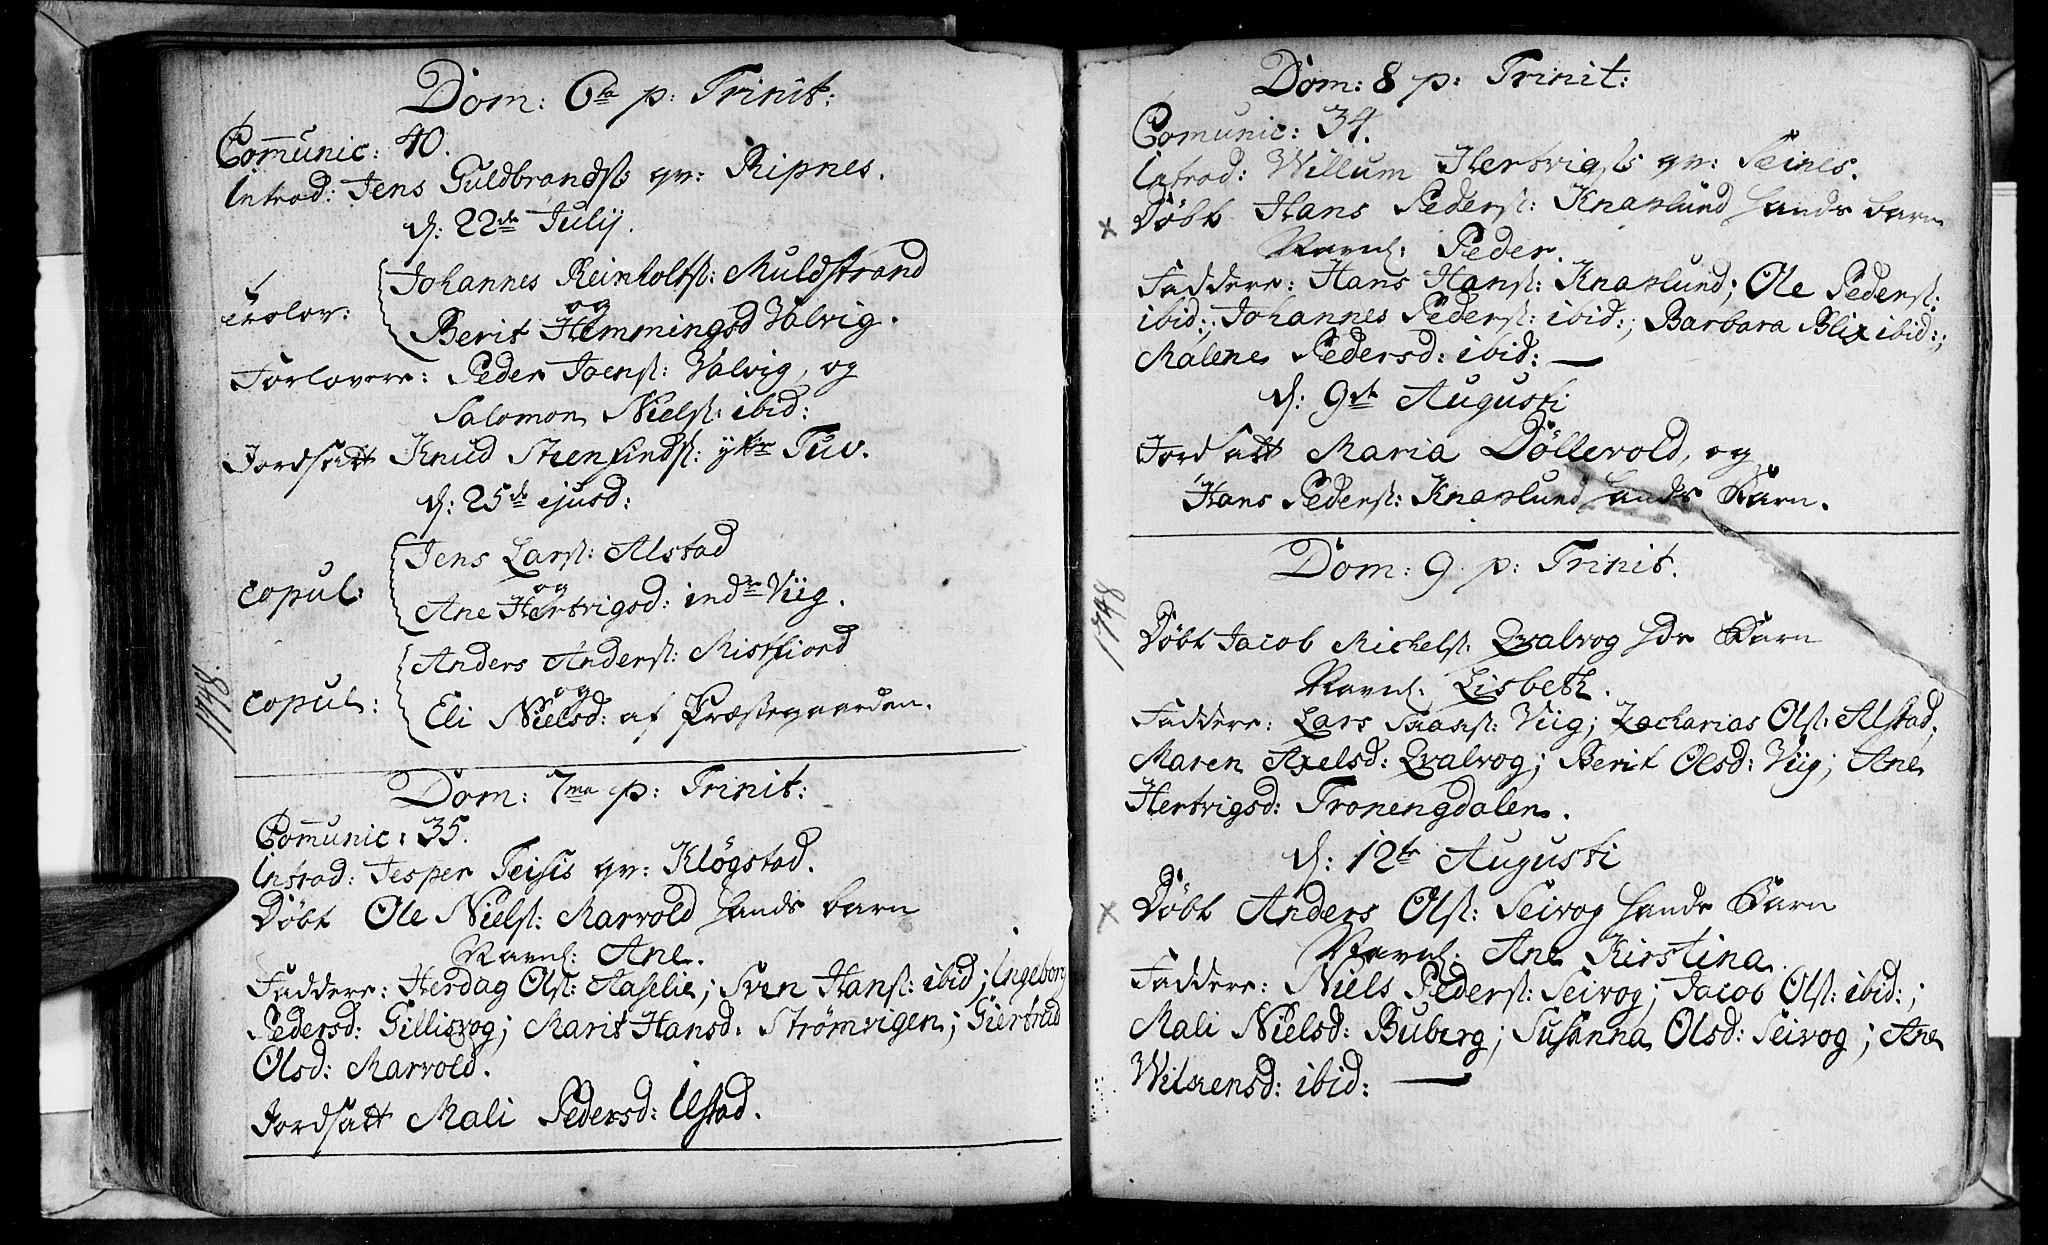 Dom: 6ta p: Trinit:
Comunic: 40.
Introd: Jens Guldbrands: qv: Ripnes.
d: 22de Julij.
Trolov: Johannes Reinholts: Muldstrand
og
Berit Hemmingsd Valvig.
Forlovere: Peder Joens: Valvig, og
Salomon Niels: ibid:
Jordsatt Knud Steenfinds: yttre Tuv.
d: 25de ejusd:
Jens Lars: Alstad
og
copul: Ane Hertvigsd: indre Viig.
Anders Anders: Mistfiord
og
copul: Eli Nielsd: af Præstegaarden.
1748.
Dom: 7ma p: Trinit:
Comunic: 35.
Introd: Jesper Teisis qv: Kløgstad.
Døbt Ole Niels: Marvold hands barn
Navnl: Ane.
Faddere: Herdag Ols: Aaselie; Sven Hans: ibid; Ingeborg
Pedersd: Gillisvog; Marit Hansd: Strømvigen; Giertrud
Olsd: Marvold.
Jordsatt Mali Pedersd: Ilstad.
Dom: 8 p: Trinit:
Comunic: 34.
Introd: Willum Hertvigs qv: Seines.
x Døbt Hans Peders: Knaplund hands barn
Navnl: Peder.
Faddere: Hans Hans: Knaplund; Ole Peders:
ibid:; Johannes Peders: ibid:; Barbara Blix ibid:;
Malene Pedersd: ibid: —
d: 9de Augusti
Jordsatt Maria Döllevold, og
Hans Peders: Knaplund hands Barn.
Dom: 9. p: Trinit.
1748
Døbt Jacob Michels: Qvalvog hds Barn
Navnl: Lisbeth.
Faddere: Lars Viig; Zacharias Ols: Alstad;
Maren Axelsd: Qvalvog; Berit Olsd: Viig; Ane
Hertvigsd: Tronengdalen.
d: 12te Augusti
x Døbt Anders Ols: Seivog hands Barn
Navnl: Ane Kirstina.
Faddere: Niels Peders: Seivog; Jacob Ols: ibid:;
Mali Nielsd: Buberg; Susanna Olsd: Seivog; Ane
Wilkensd: ibid: —